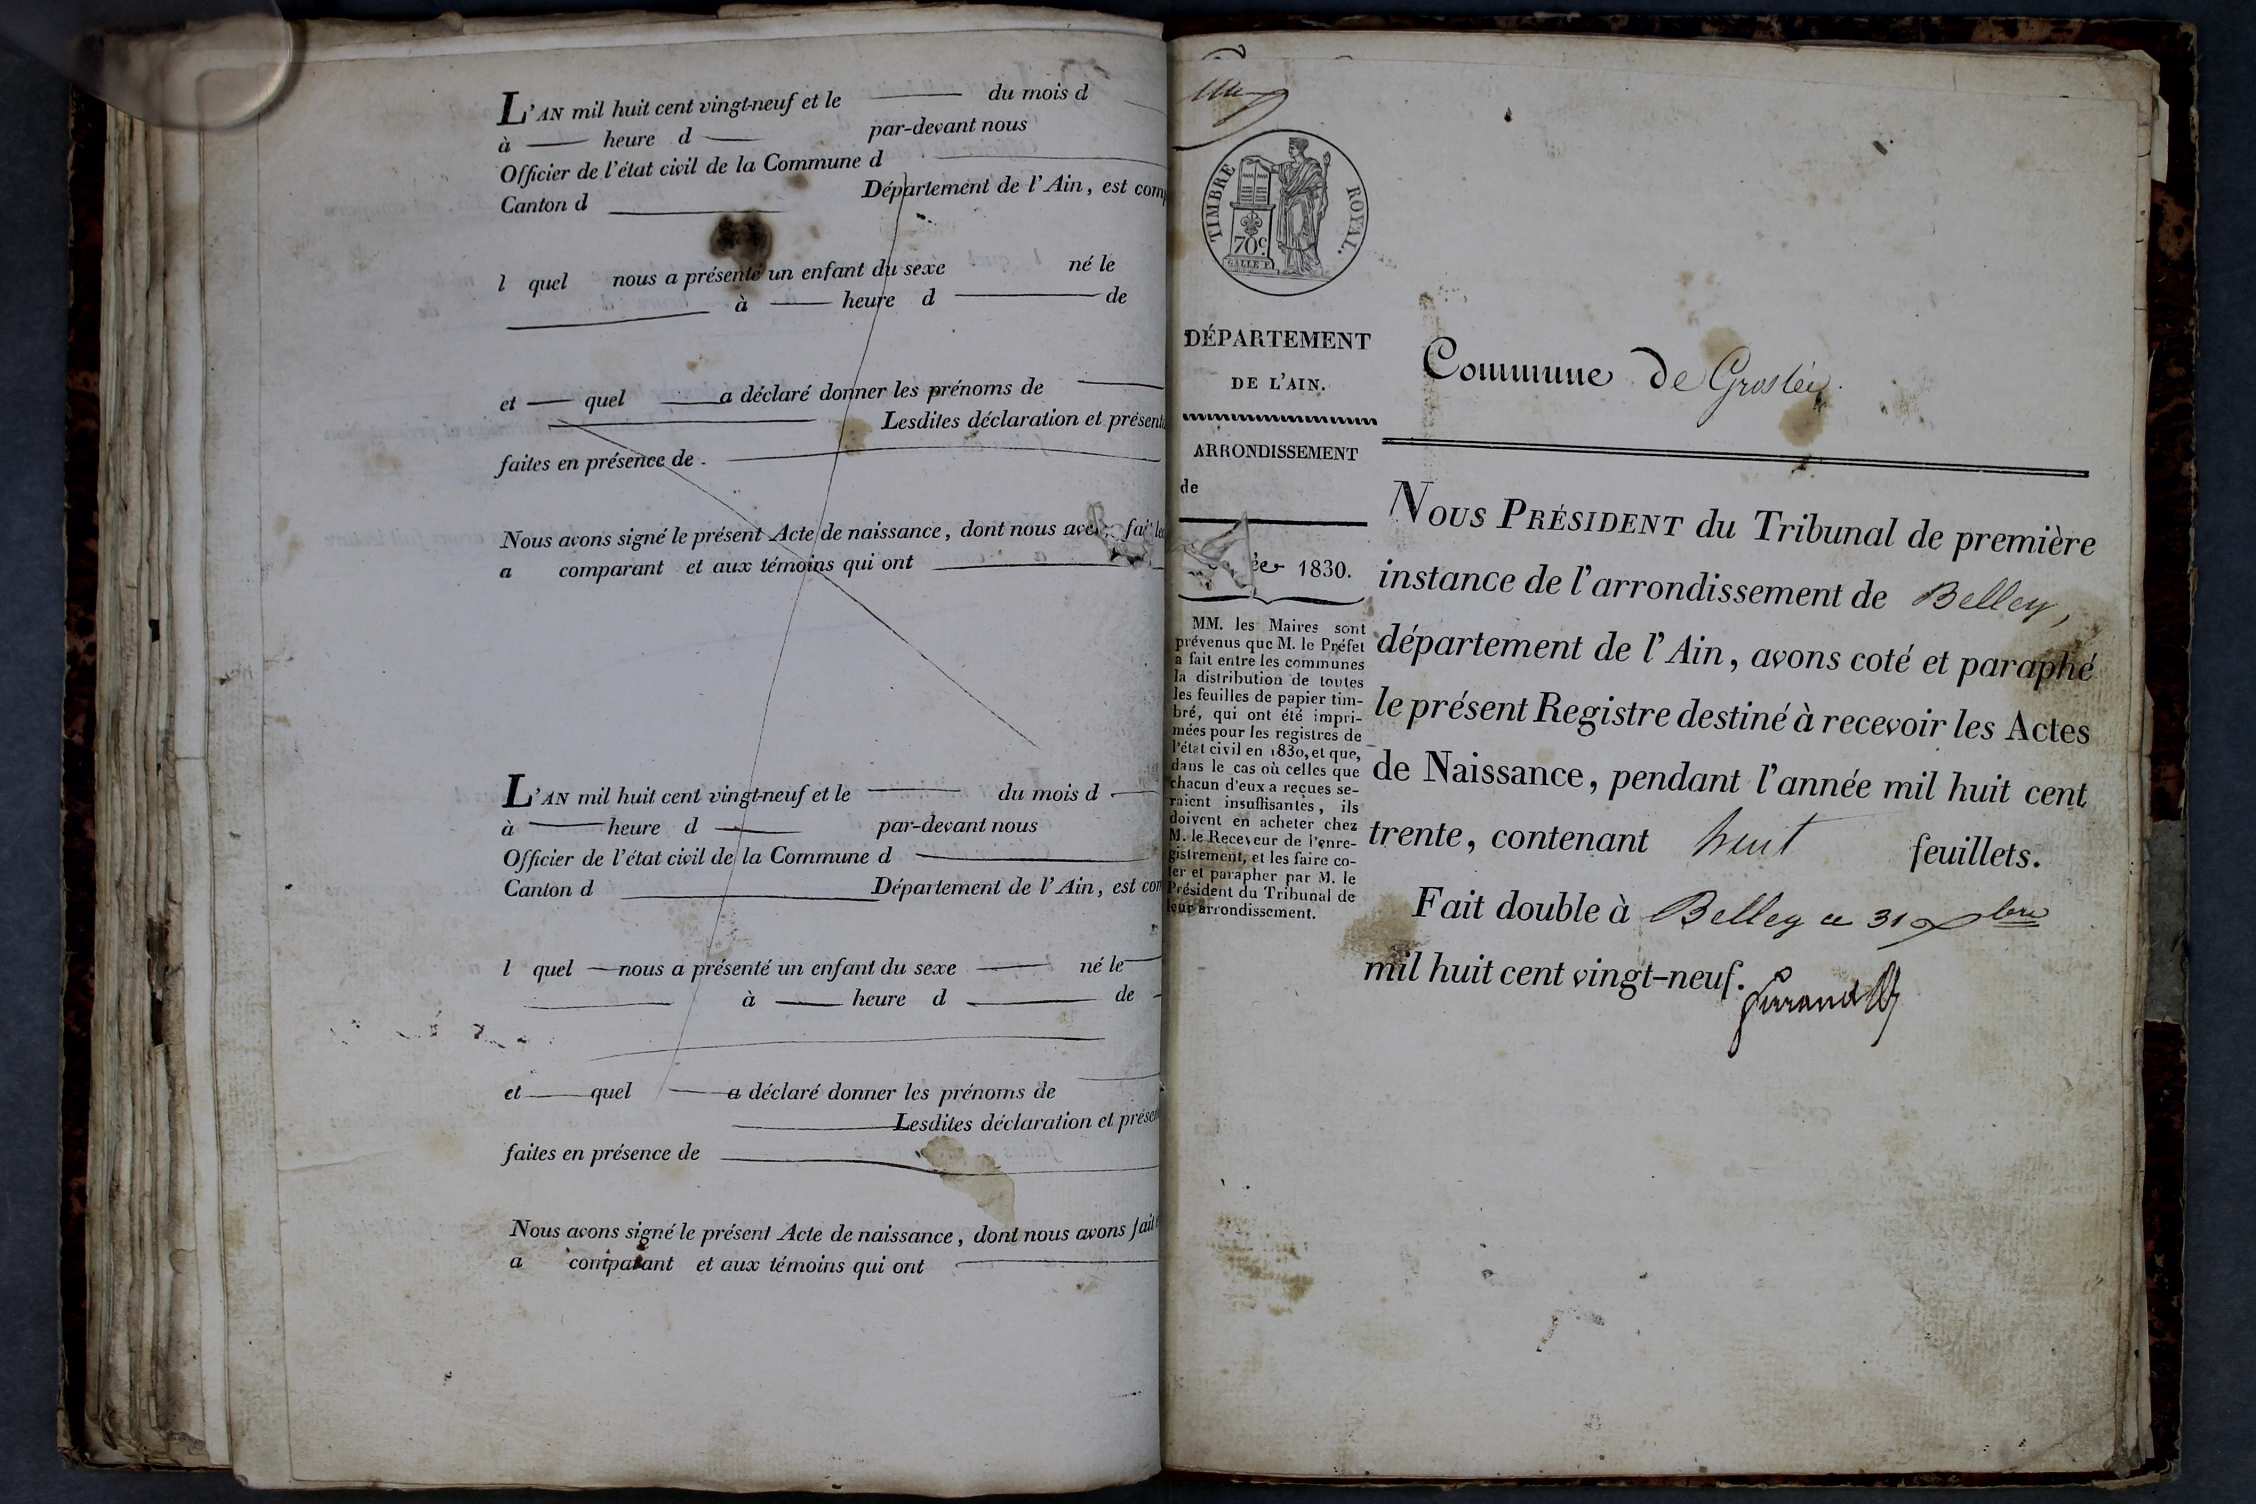 L'AN mil huit cent vingt-neuf et le du mois d
à heure d par-devant nous
Officier de l'état civil de la Commune d
Canton d Département de l'Ain, est comp
l quel nous a présenté un enfant du sexe né le
à heure d de
et quel a déclaré donner les prénoms de
Lesdites déclaration et présenta
faites en présence de
Nous avons signé le présent Acte de naissance, dont nous avons fait lec
a comparant et aux témoins qui ont
L'AN mil huit cent vingt-neuf et le du mois d
à heure d par-devant nous
Officier de l'état civil de la Commune d
Canton d Département de l'Ain, est com
l quel nous a présenté un enfant du sexe né le
à heure d de
et quel a déclaré donner les prénoms de
Lesdites déclaration et présen
faites en présence de
Nous avons signé le présent Acte de naissance, dont nous avons fait
a comparant et aux témoins qui ont
TIMBRE ROYAL.
70c
DÉPARTEMENT
DE L'AIN.
ARRONDISSEMENT
de
1830.
MM. les Maires sont
prévenus que M. le Préfet
a fait entre les communes
la distribution de toutes
les feuilles de papier tim-
bré, qui ont été impri-
mées pour les registres de
l'état civil en 1830, et que,
dans le cas où celles que
chacun d'eux a reçues se-
raient insuffisantes, ils
doivent en acheter chez
M. le Receveur de l'enre-
gistrement, et les faire co-
ter et parapher par M. le
Président du Tribunal de
leur arrondissement.
Commune de Groslée.
NOUS PRÉSIDENT du Tribunal de première
instance de l'arrondissement de Belley,
département de l'Ain, avons coté et paraphé
le présent Registre destiné à recevoir les Actes
de Naissance, pendant l'année mil huit cent
trente, contenant huit feuillets.
Fait double à Belley ce 31 Xbre
mil huit cent vingt-neuf.